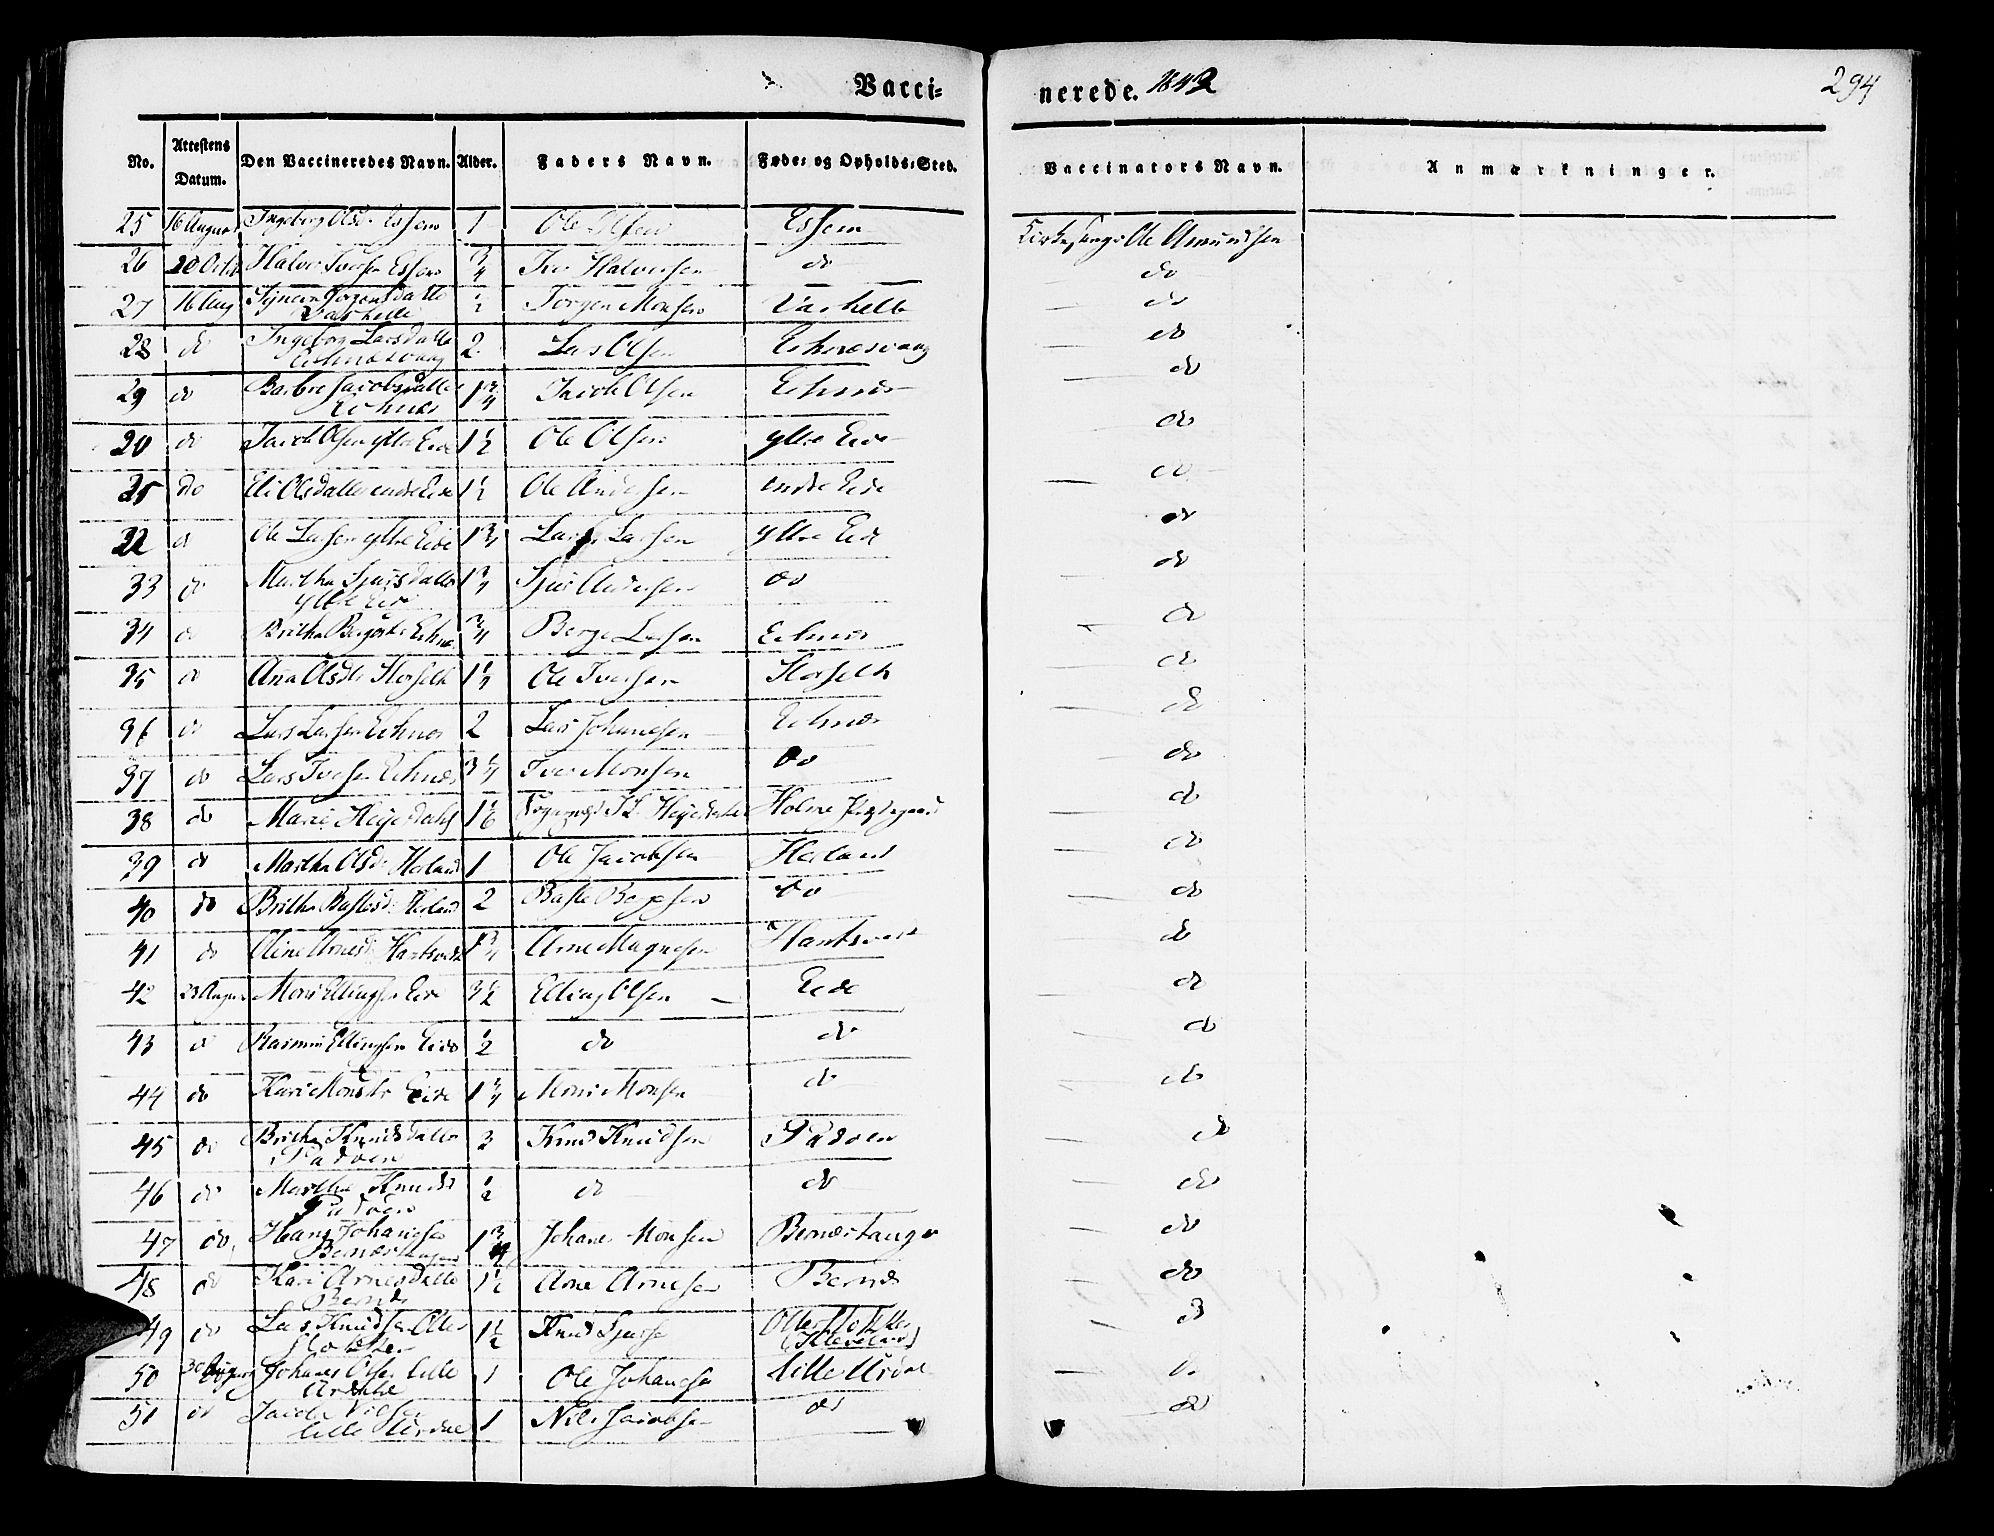 Vacci=
nerede. 1842
294
No. Attestens Datum. Den Vaccineredes Navn. Alder. Faders Navn. Føde= og Opholds=Sted. Vaccinators Navn. Anmærkninger.
25 16 August Ingeborg Olsd. Essem 1 Ole Olsen Essem Kirkesang. Ole Amundsen
26 20 Octb Halvor Iversen Essem 3/4 Iver Halvorsen do do
27 16 Aug Jørgensdatter 1/2 Jørgen Monsen do
28 do Ingeborg Larsdatter Echnæsvaag 2 Lars Olsen Echnæsvaag do
29 do Barbre Jacobsdatter Echnæs 1 3/4 Jacob Olsen Echnæs do
20 do Jacob Olsen yttre Eide 1 1/2 Ole Olsen yttre Eide do
do Eli Olsdatter indre Eide 1 1/2 Ole Andersen indre Eide do
32 do Ole Larsen yttre Eide 1 3/4 Lars Larsen yttre Eide do
33 do Martha Sjursdatter yttre Eide 1 3/4 Sjur Andersen do do
34 do Britha Echnæs 3/4 Berge Larsen Echnæs do
35 do Anna Olsdtr 1 1/4 Ole Iversen do
36 do Lars Larsen Echnæs 2 Lars Johanesen Echnæs do
37 do Lars Iversen Echnæs 3 1/4 Iver Monsen do do
38 do Marie Heyerdahl 1 1/6 Heyerdahl Holme Præstegaard do
39 do Martha Olsd. Herland 1 Ole Jacobsen Herland do
40 do Britha Herland 2 Baste do do
41 do Oline Arnesd. Hantsveit 1 3/4 Arne Magnesen Hantsveit do
42 23 August Mons Ellingsen Eide 3 1/2 Elling Olsen Eide do
43 do Rasmus Ellingsen Eide 1/2 do do do
44 do Kari Monsdtr Eide 1 3/4 Mons Monsen do do
45 do Britha Knudsdatter Padøen 3 Knud Knudsen Padøen do
46 do Martha Knudsd Padøen 1/2 do do do
47 do Hans Johanesen Bernæstangen 1 3/4 Johanes Monsen Bernæstangen do
48 do Kari Arnesdatter Bernæs 1 1/2 Arne Arnesen Bernæs do
49 do Lars Knudsen 1 1/2 Knud Sjursen do
50 30 August Johanes Olsen Lille 1 Ole Johanesen Lille Urdal do
51 do Jacob Nilsen Lille Urdal 1 Nils Jacobsen do do